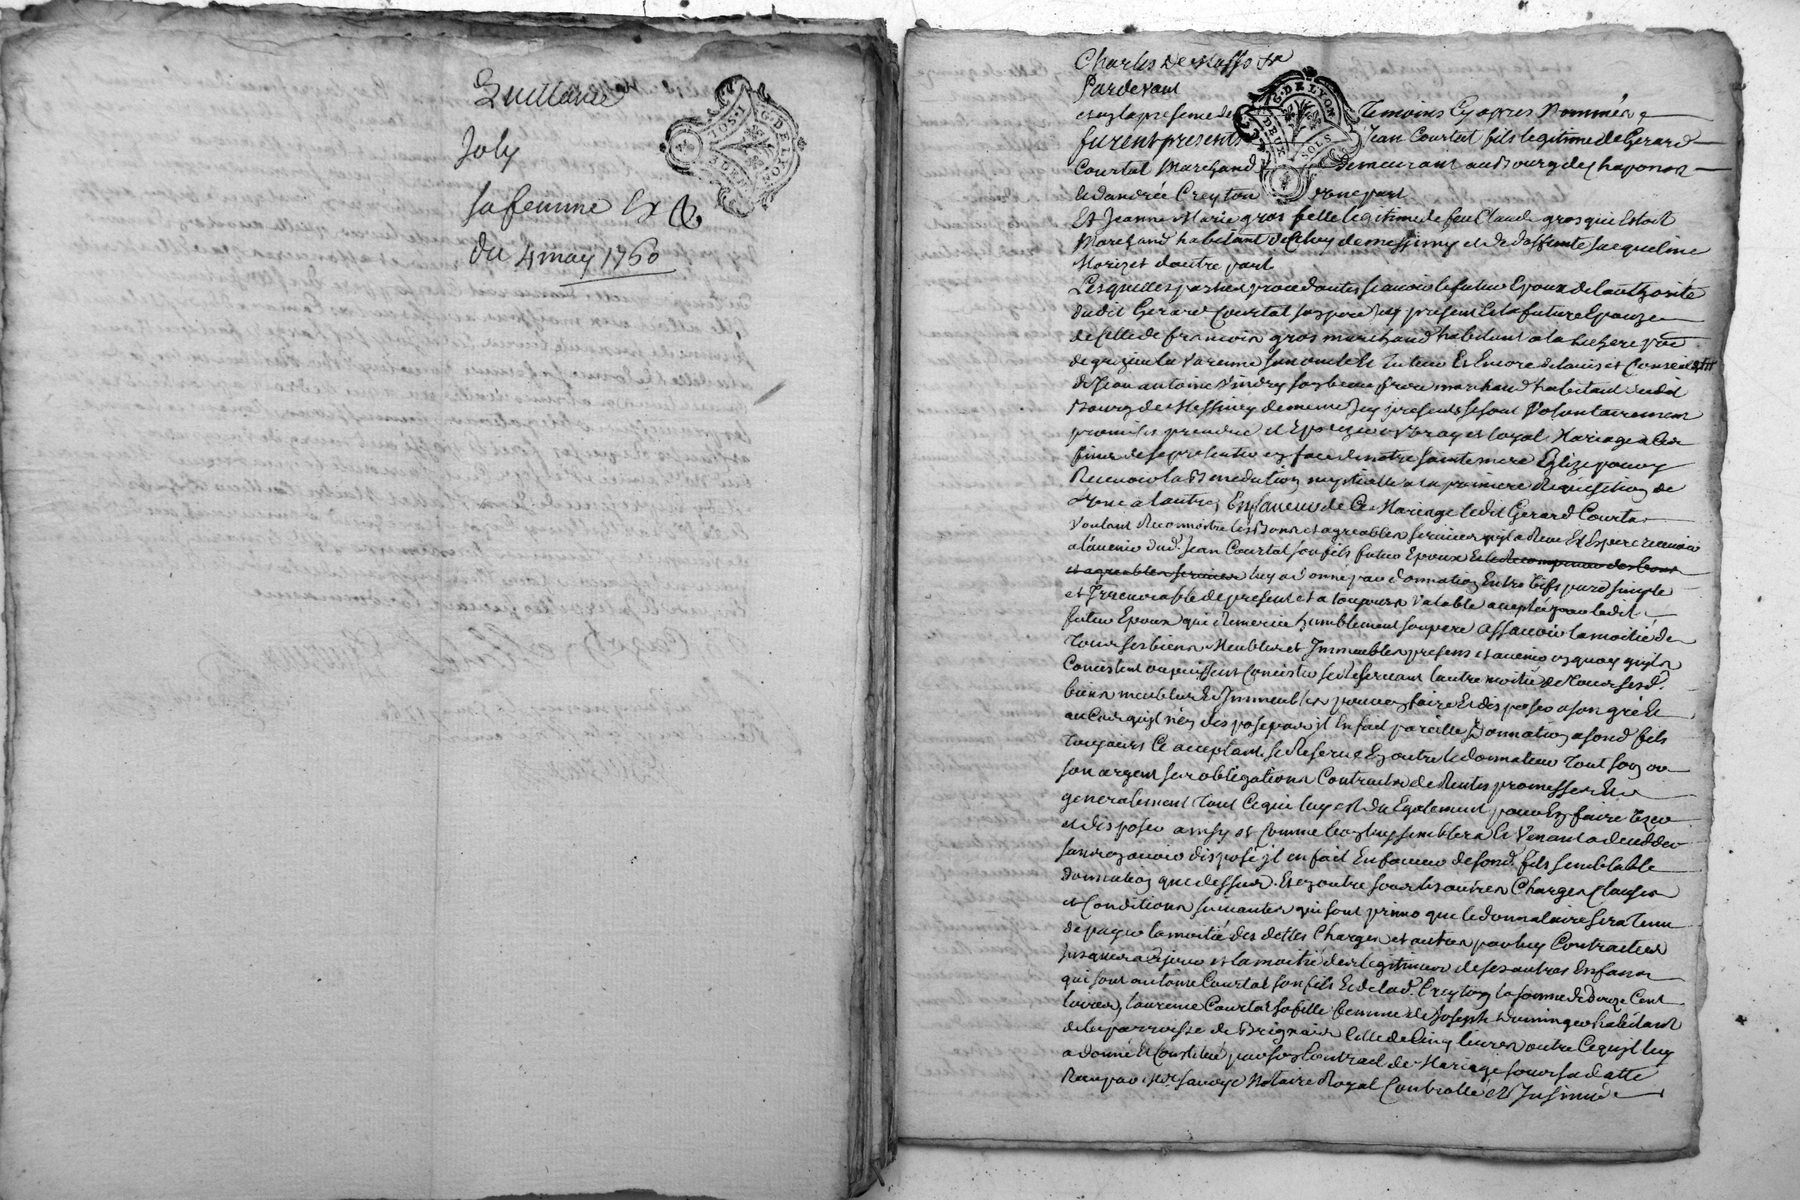 Guillaume
Joly
sa femme Ex
du 4 may 1760
G. DE LYON
SOLS
DEUX
G. DE LYON
DEUX
SOLS
Pardevant
et en la presence des Temoins Cy apres Nommés
furent presents Jean Courtat fils legitime de Gerard
Courtat Marchand demeurant au Bourg de Chaponot
et d'andrée Creyton d'une part
Et Jeanne Marie gros fille legitime de feu Claude gros qui Estoit
Marchand habitant de Messimy et de deffunte Jacqueline
d'autre part
Lesquelles parties procedantes scavoir le futur Epoux de l'authorité
dudit Gerard Courtat son pere Icy present et la future Epouze
de celle de francois gros marchand habitant a la
de la Varenne son oncle et Tuteur Et Encore de l'avis et Conseil
de Jean antoine Vindry son beau frere marchand habitant dudit
Bourg de Messimy de meme Icy present se sont Volontairement
promis se prendre et Epouzer en Vray et loyal Mariage a Ces
fins de se presenter en face de notre sainte mere Eglize pour y
Recevoir la Benediction nuptialle a la premiere Requisition de
l'une a l'autre, En faveur de Ce Mariage ledit Gerard Courtat
Voulant Reconnoitre les Bons et agreables services qu'il a Reçu Et Espere recevoir
a l'avenir dud. Jean Courtat son fils futur Epoux Et
et agreables services luy a donné par donnation Entre Vifs pure simple
et Irrevocable de present et a toujours Valable acceptée par ledit
futur Epoux qui Remercie humblement son pere assavoir la moitié de
Tous ses biens Meubles et Immeubles presens et avenir en quoy qu'ils
Concistent ou puissent Concister se Reservant l'autre moitié de Tous sesd.
biens meubles Et Immeubles pour en faire Et disposer a son gré Et
au Cas qu'il n'en dispose pas il En fait pareille Donnation a sond. fils
Toujours Ce acceptant, se Reserve En outre le donnateur Tout son or
son argent ses obligations Contracts de Rentes promesses Et
generalement Tout Ce qui luy est du Egalement pour En faire
et disposer ainsy et Comme bon luy semblera Et Venant a deceder
sans en avoir disposé il en fait En faveur de sond. fils semblable
donnation que dessus. Et en outre sous les autres Charges Clauses
et Conditions suivantes qui sont primo que le donnataire sera Tenu
de payer la moitié des dettes Charges et autres par luy Contractées
jusques a ce jour et la moitié des legitimes de ses autres Enfans
qui sont antoine Courtat son fils Et de lad. Creyton la somme de Douze Cent
livres, laurence Courtat sa fille femme de Joseph habitant
de la parroisse de Brignais Celle de Cinq livres outre Ce qu'il luy
a donné et Constitué par son Contract de Mariage sous sa datte
Reçu par Me Savoye Notaire Royal Controllé et Insinué